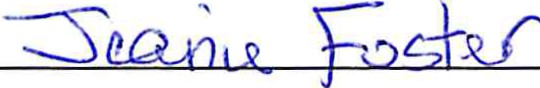 Jeanie Foster